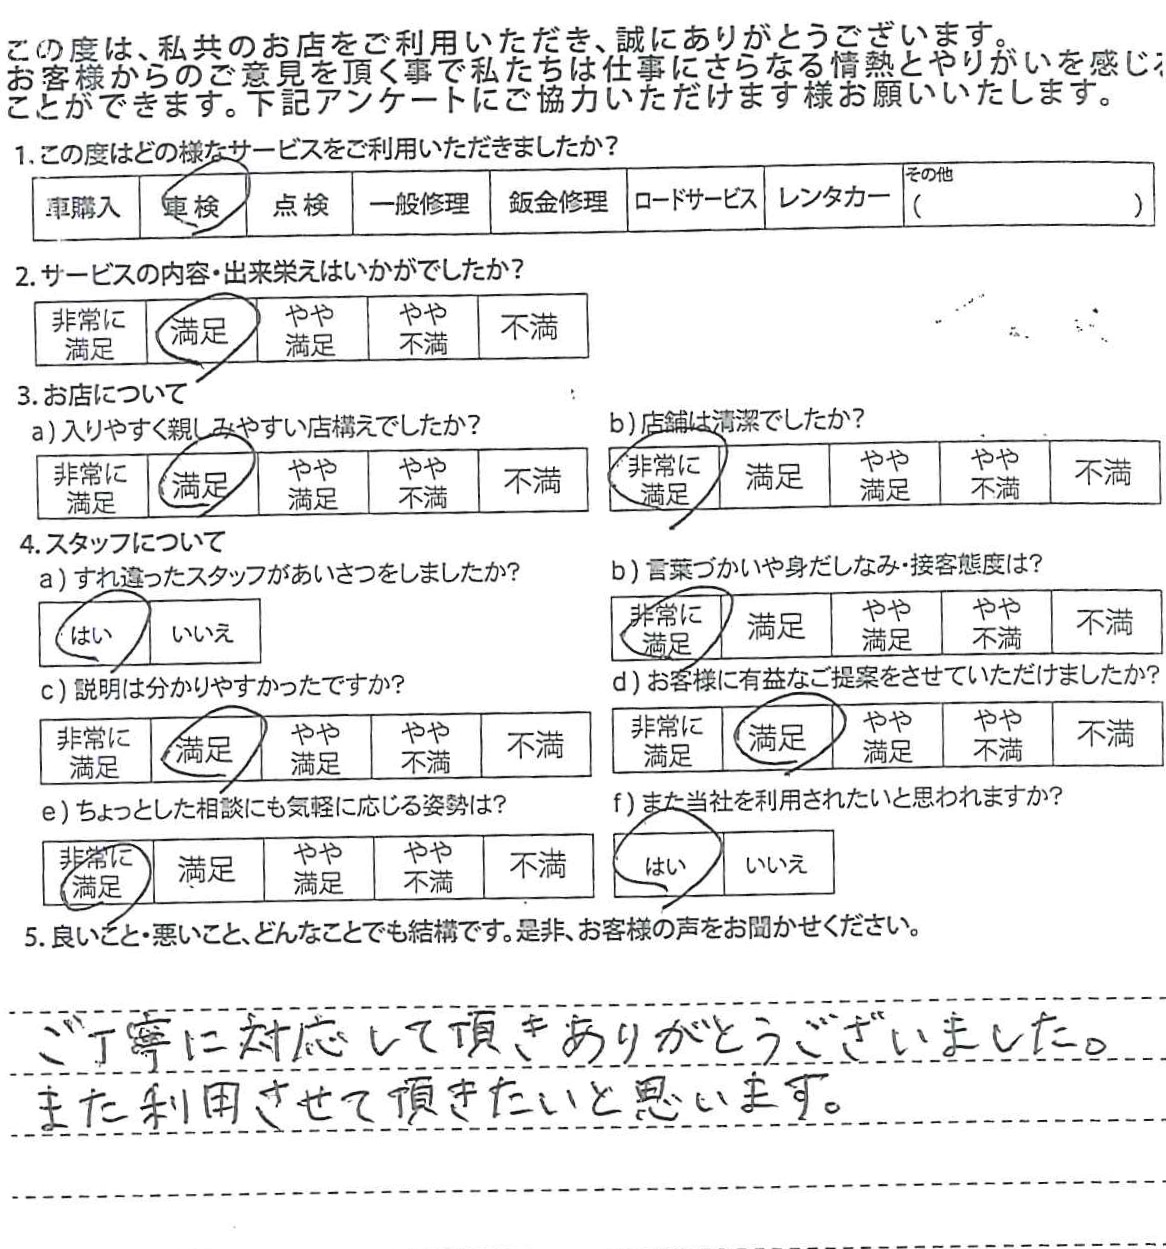 この度は、私共のお店をご利用いただき、誠にありがとうございます。
お客様からのご意見を頂く事で私たちは仕事にさらなる情熱とやりがいを感じ
ことができます。下記アンケートにご協力いただけます様お願いいたします。
1.この度はどの様なサービスをご利用いただきましたか?
車購入 車検 点検 一般修理 鈑金修理 ロードサービス レンタカー その他 ( )
2.サービスの内容・出来栄えはいかがでしたか?
非常に満足 満足 やや満足 やや不満 不満
3.お店について
a)入りやすく親しみやすい店構えでしたか?
非常に満足 満足 やや満足 やや不満 不満
b)店舗は清潔でしたか?
非常に満足 満足 やや満足 やや不満 不満
4.スタッフについて
a)すれ違ったスタッフがあいさつをしましたか?
はい いいえ
b)言葉づかいや身だしなみ・接客態度は?
非常に満足 満足 やや満足 やや不満 不満
c)説明は分かりやすかったですか?
非常に満足 満足 やや満足 やや不満 不満
d)お客様に有益なご提案をさせていただけましたか?
非常に満足 満足 やや満足 やや不満 不満
e)ちょっとした相談にも気軽に応じる姿勢は?
非常に満足 満足 やや満足 やや不満 不満
f)また当社を利用されたいと思われますか?
はい いいえ
5.良いこと・悪いこと、どんなことでも結構です。是非、お客様の声をお聞かせください。
ご丁寧に対応して頂きありがとうございました。
また利用させて頂きたいと思います。